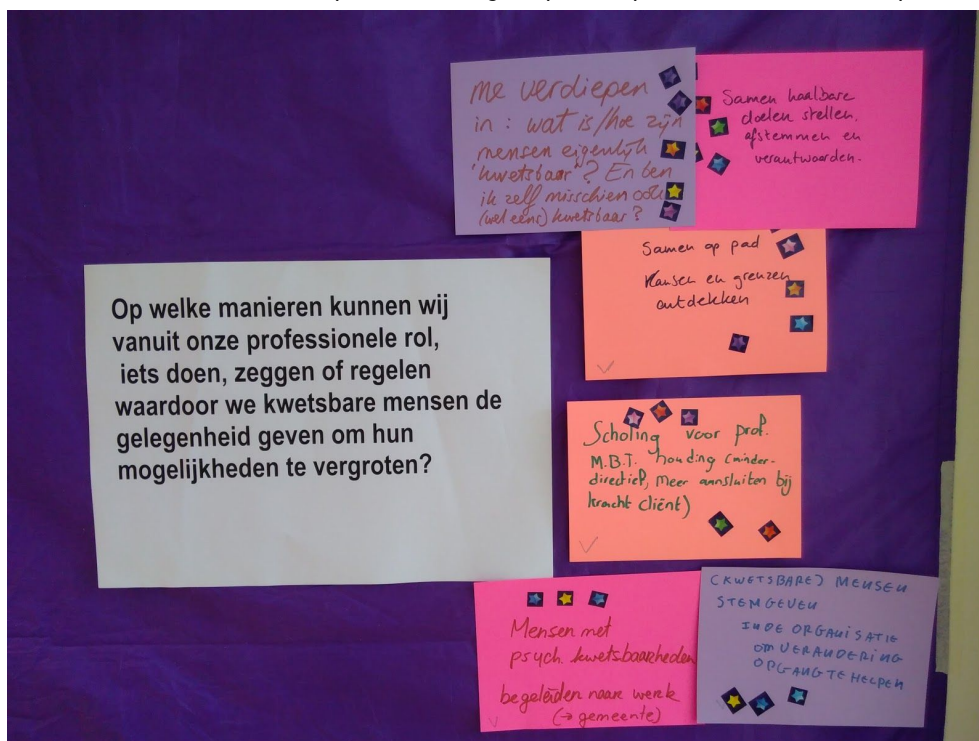 Op welke manieren kunnen wij
vanuit onze professionele rol,
iets doen, zeggen of regelen
waardoor we kwetsbare mensen de
gelegenheid geven om hun
mogelijkheden te vergroten?
me verdiepen
in : wat is/hoe zijn
mensen eigenlijk
'kwetsbaar'? En ben
ik zelf misschien ook
(wel eens) kwetsbaar?
Samen haalbare
doelen stellen,
afstemmen en
verantwoorden.
Samen op pad
Kansen en grenzen
ontdekken
Scholing voor prof.
M.B.T. houding (minder-
directief, meer aansluiten bij
kracht cliënt)
Mensen met
psych. kwetsbaarheden
begeleiden naar werk
(→ gemeente)
(KWETSBARE) MENSEN
STEM GEVEN
IN DE ORGANISATIE
OM VERANDERING
OP GANG TE HELPEN